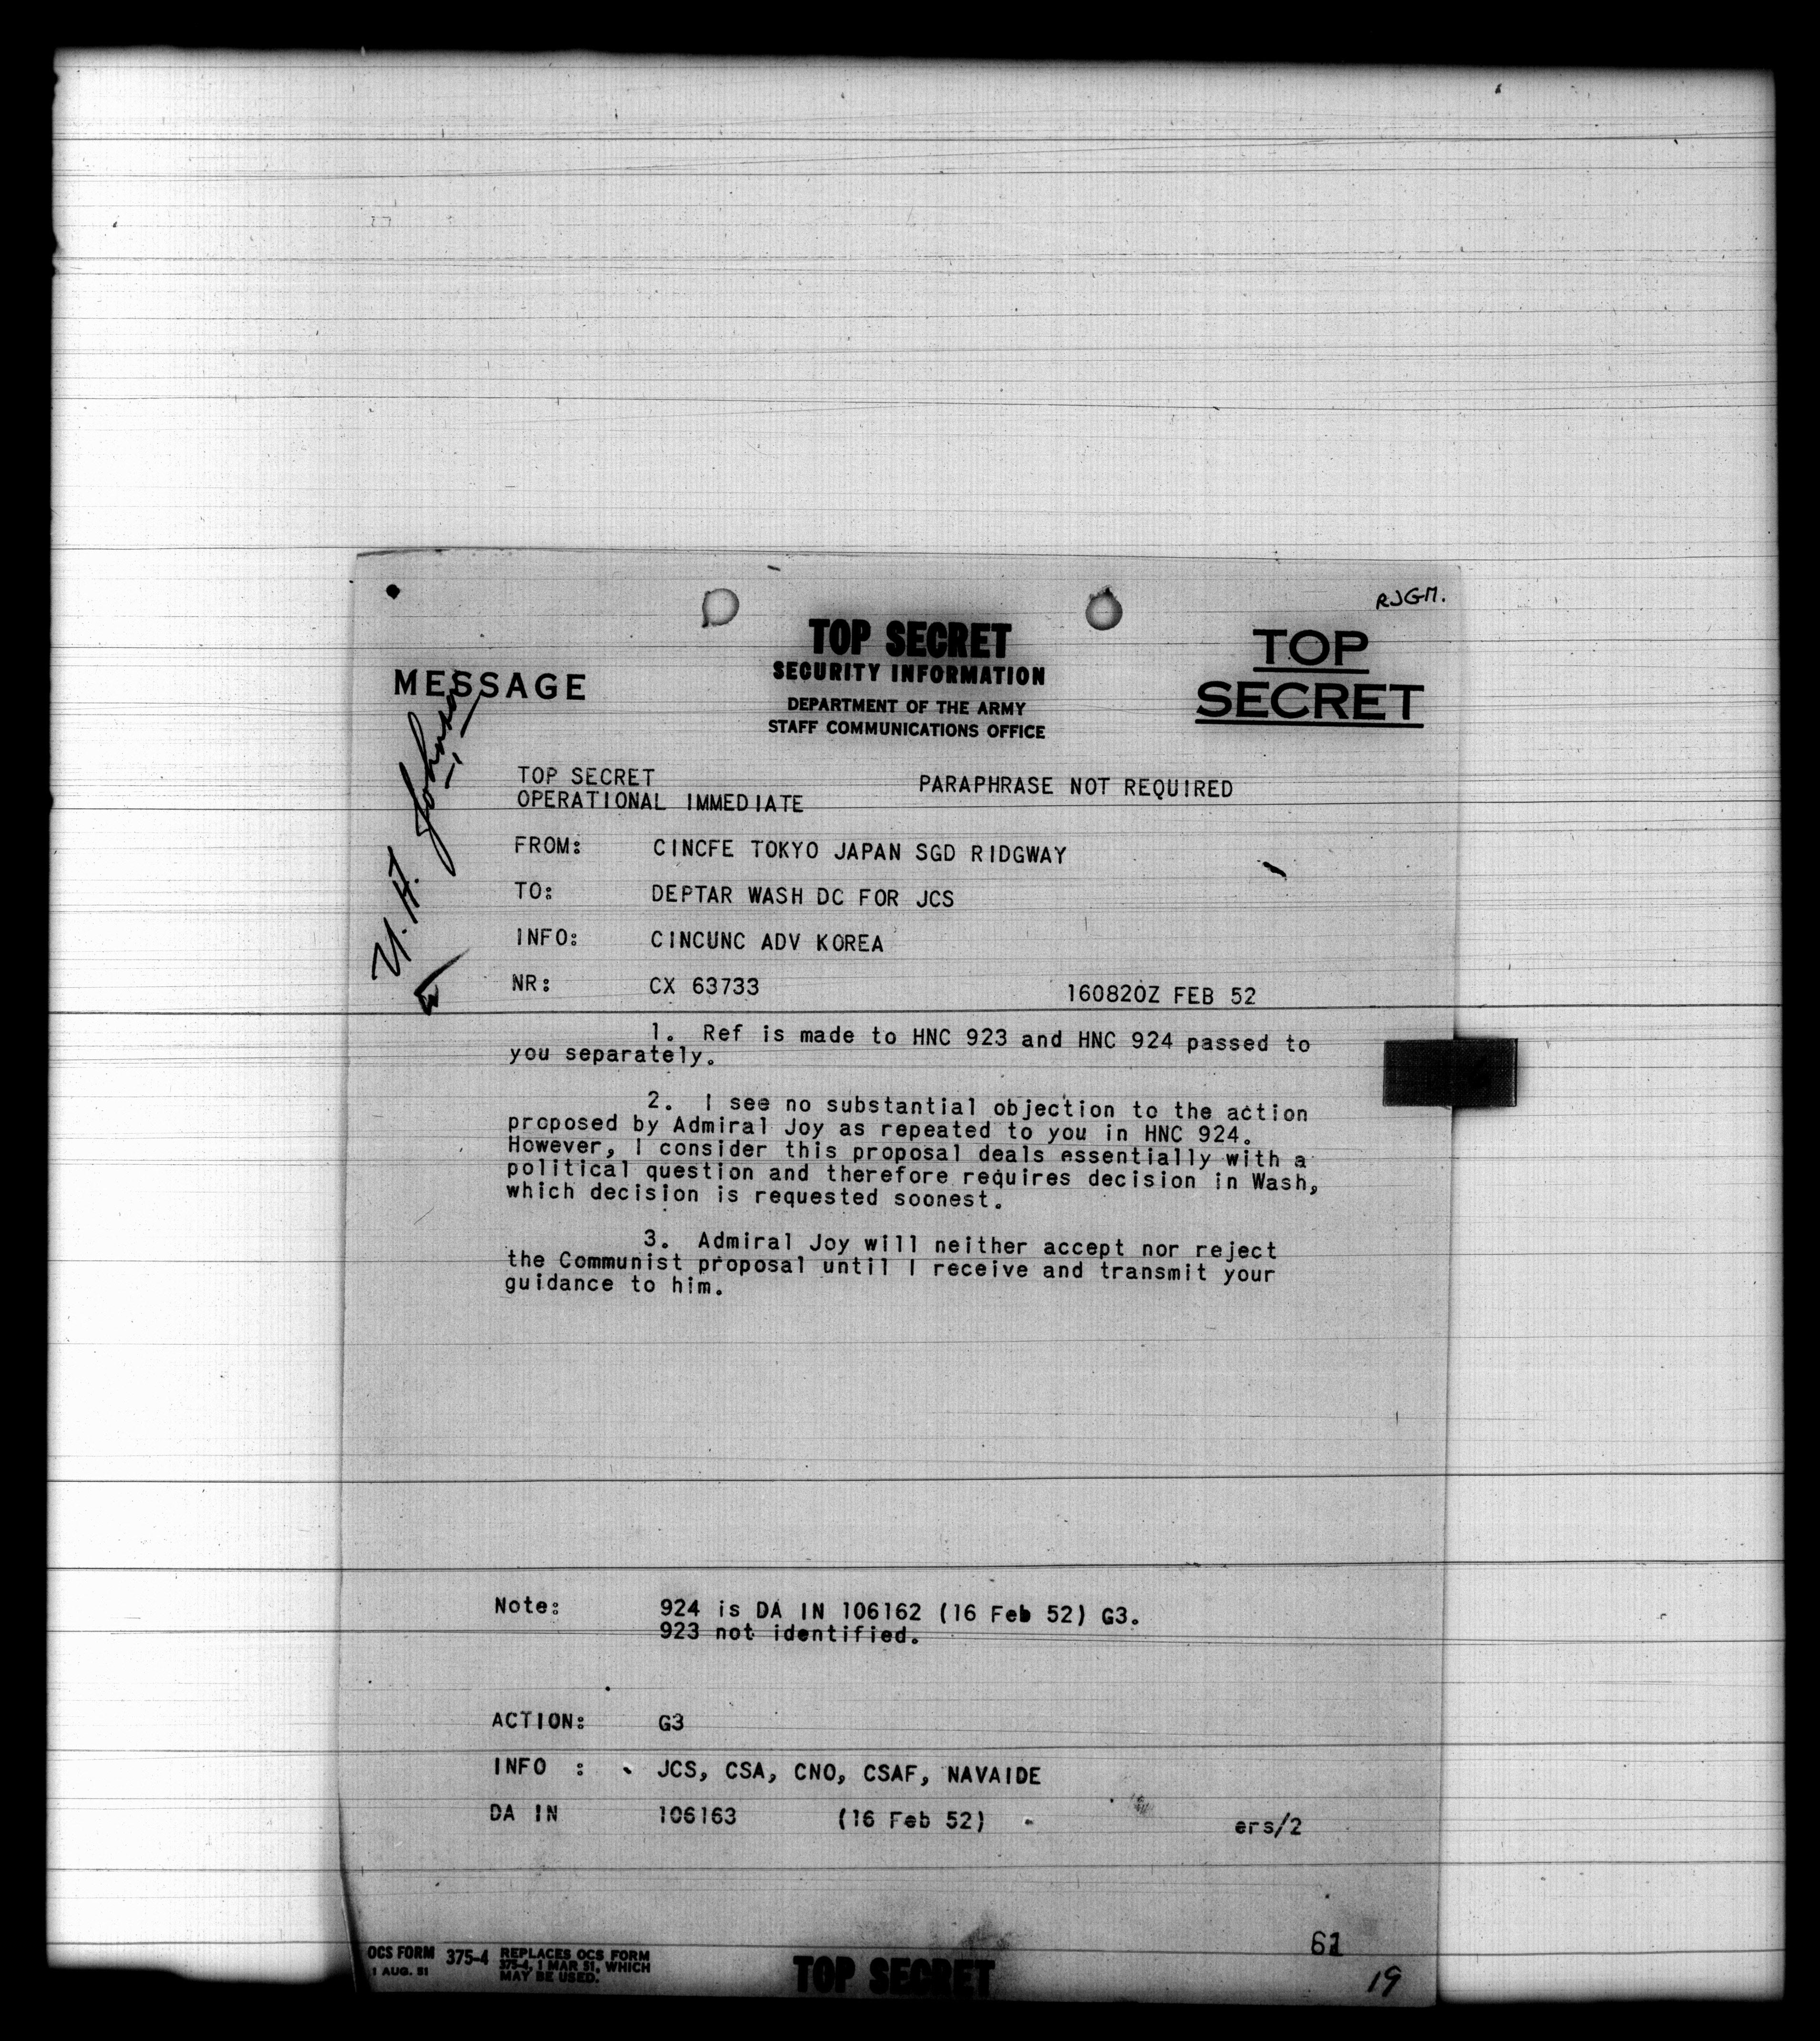 RJGM.
TOP SECRET
SECURITY INFORMATION
DEPARTMENT OF THE ARMY
STAFF COMMUNICATIONS OFFICE
MESSAGE
TOP
SECRET
U. A. Johnson
TOP SECRET
OPERATIONAL IMMEDIATE
PARAPHRASE NOT REQUIRED
FROM: CINCFE TOKYO JAPAN SGD RIDGWAY
TO: DEPTAR WASH DC FOR JCS
INFO: CINCUNC ADV KOREA
NR: CX 63733 160820Z FEB 52
1. Ref is made to HNC 923 and HNC 924 passed to
you separately.
2. I see no substantial objection to the action
proposed by Admiral Joy as repeated to you in HNC 924.
However, I consider this proposal deals essentially with a
political question and therefore requires decision in Wash,
which decision is requested soonest.
3. Admiral Joy will neither accept nor reject
the Communist proposal until I receive and transmit your
guidance to him.
Note: 924 is DA IN 106162 (16 Feb 52) G3.
923 not identified.
ACTION: G3
INFO : JCS, CSA, CNO, CSAF, NAVAIDE
DA IN 106163 (16 Feb 52) ers/2
61
19
OCS FORM 375-4 REPLACES OCS FORM
1 AUG. 51 375-4, 1 MAR 51, WHICH
MAY BE USED.
TOP SECRET